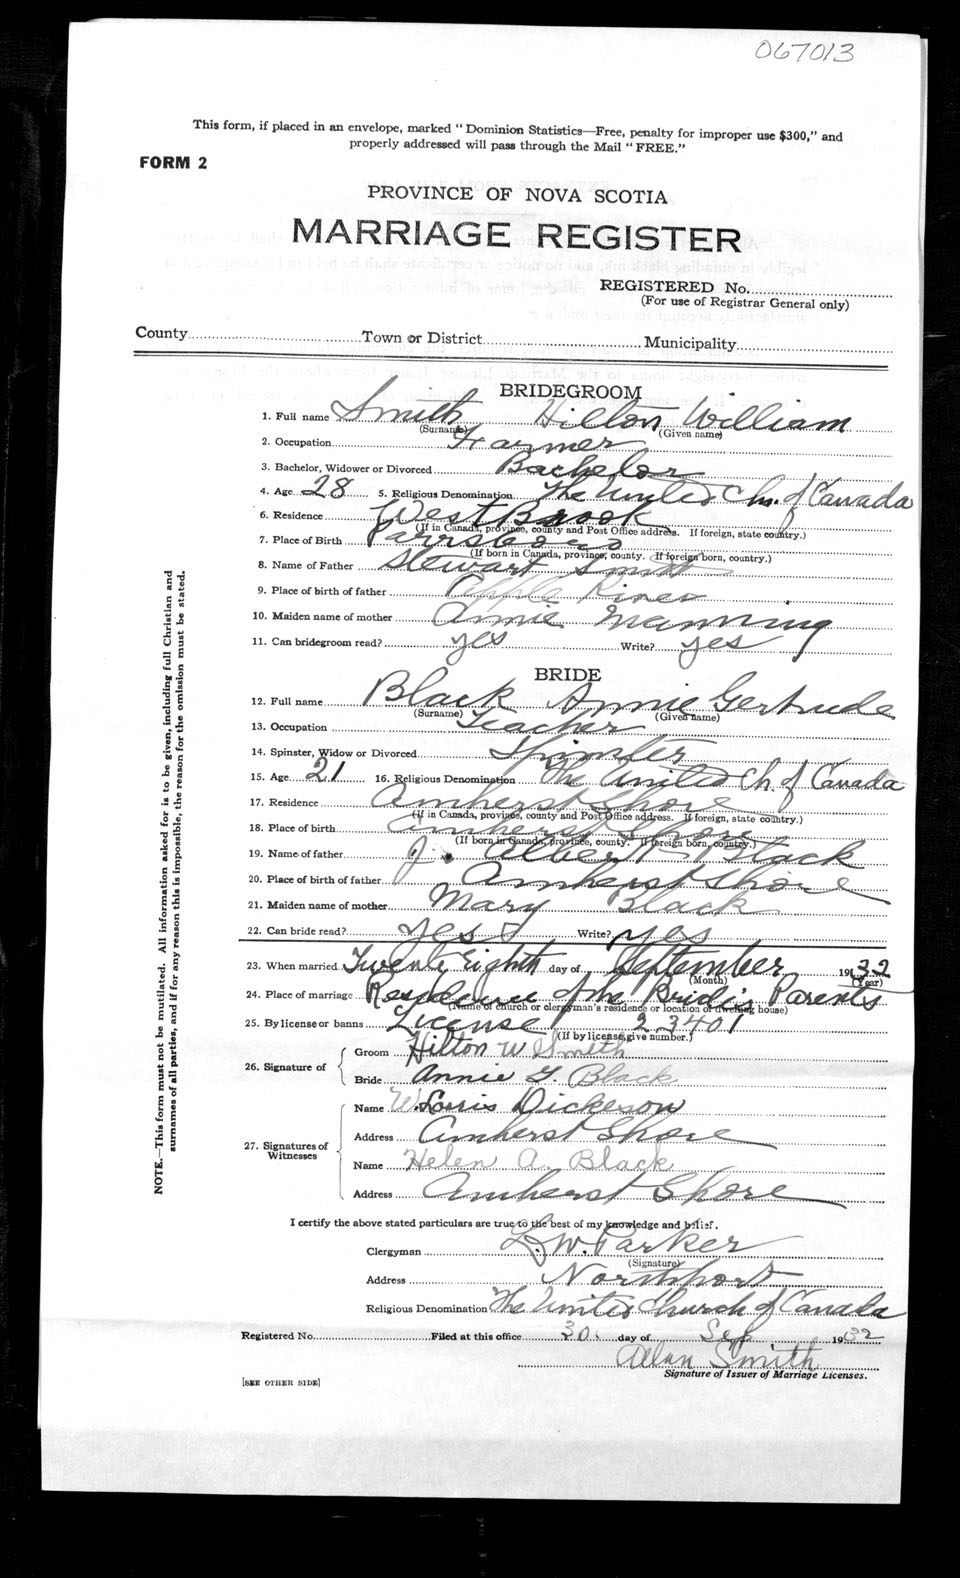 067013
This form, if placed in an envelope, marked "Dominion Statistics—Free, penalty for improper use $300," and
properly addressed will pass through the Mail "FREE."
FORM 2
PROVINCE OF NOVA SCOTIA
MARRIAGE REGISTER
REGISTERED No.
(For use of Registrar General only)
County Town or District Municipality
BRIDEGROOM
1. Full name Smith Hilton William
(Surname) (Given name)
2. Occupation Farmer
3. Bachelor, Widower or Divorced Bachelor
4. Age 28 5. Religious Denomination The United Ch. of Canada
6. Residence West Brook
(If in Canada, province, county and Post Office address. If foreign, state country.)
7. Place of Birth Parrsboro
(If born in Canada, province, county. If foreign born, country.)
8. Name of Father Stewart Smith
9. Place of birth of father Apple River
10. Maiden name of mother Annie Manning
11. Can bridegroom read? yes Write? yes
BRIDE
12. Full name Black Annie Gertrude
(Surname) (Given name)
13. Occupation Teacher
14. Spinster, Widow or Divorced Spinster
15. Age 21 16. Religious Denomination The United Ch. of Canada
17. Residence Amherst Shore
(If in Canada, province, county and Post Office address. If foreign, state country.)
18. Place of birth Amherst Shore
(If born in Canada, province, county. If foreign born, country.)
19. Name of father J. Albert Black
20. Place of birth of father Amherst Shore
21. Maiden name of mother Mary Black
22. Can bride read? yes Write? yes
23. When married Twenty Eighth day of September 1932
(Month) (Year)
24. Place of marriage Residence of the Bride's Parents
(Name of church or clergyman's residence or location of dwelling house)
25. By license or banns License 23401
(If by license, give number.)
26. Signature of
Groom Hilton W Smith
Bride Annie G. Black
27. Signatures of Witnesses
Name W. Dickeson
Address Amherst Shore
Name Helen A. Black
Address Amherst Shore
I certify the above stated particulars are true to the best of my knowledge and belief.
Clergyman W. Parker
(Signature)
Address Northport
Religious Denomination The United Church of Canada
Registered No. Filed at this office 30. day of Sep. 1932
Allan Smith
Signature of Issuer of Marriage Licenses.
[SEE OTHER SIDE]
NOTE.—This form must not be mutilated. All information asked for is to be given, including full Christian and
surnames of all parties, and if for any reason this is impossible, the reason for the omission must be stated.